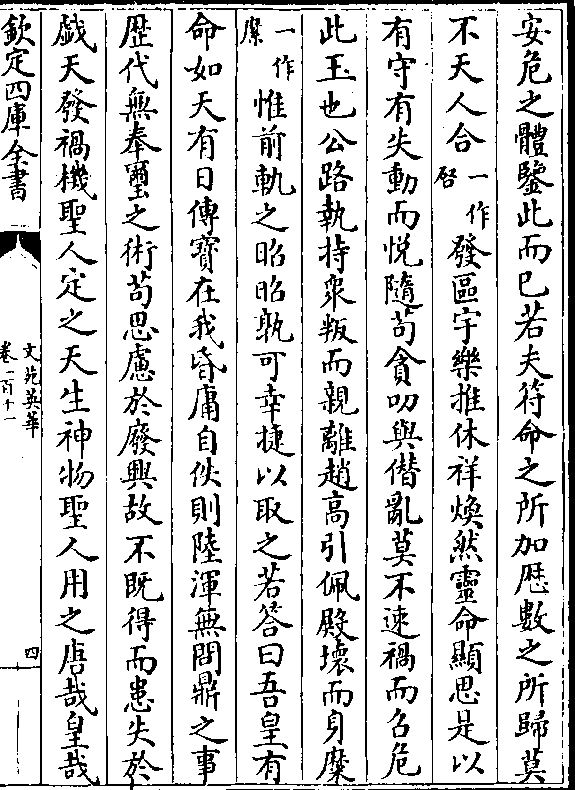 安危之體鑒此而已若夫符命之所加厯數之所歸莫
不天人合一作啓發區宇樂推休祥煥然靈命顯思是以
有守有失動而悦隨苟貪叨與僭亂莫不速禍而召危
此玉也公路執持衆叛而親離趙高引佩殿壞而身糜
一作糜惟前軌之昭昭孰可幸捷以取之若答曰吾皇有
命如天有日傳寳在我昏庸自佚則陸渾無問鼎之事
歴代無奉璽之術茍思慮於廢興故不既得而患失於
戯天發禍機聖人定之天生神物聖人用之唐哉皇哉
欽定四庫全書
文苑英華
卷一百十一
四